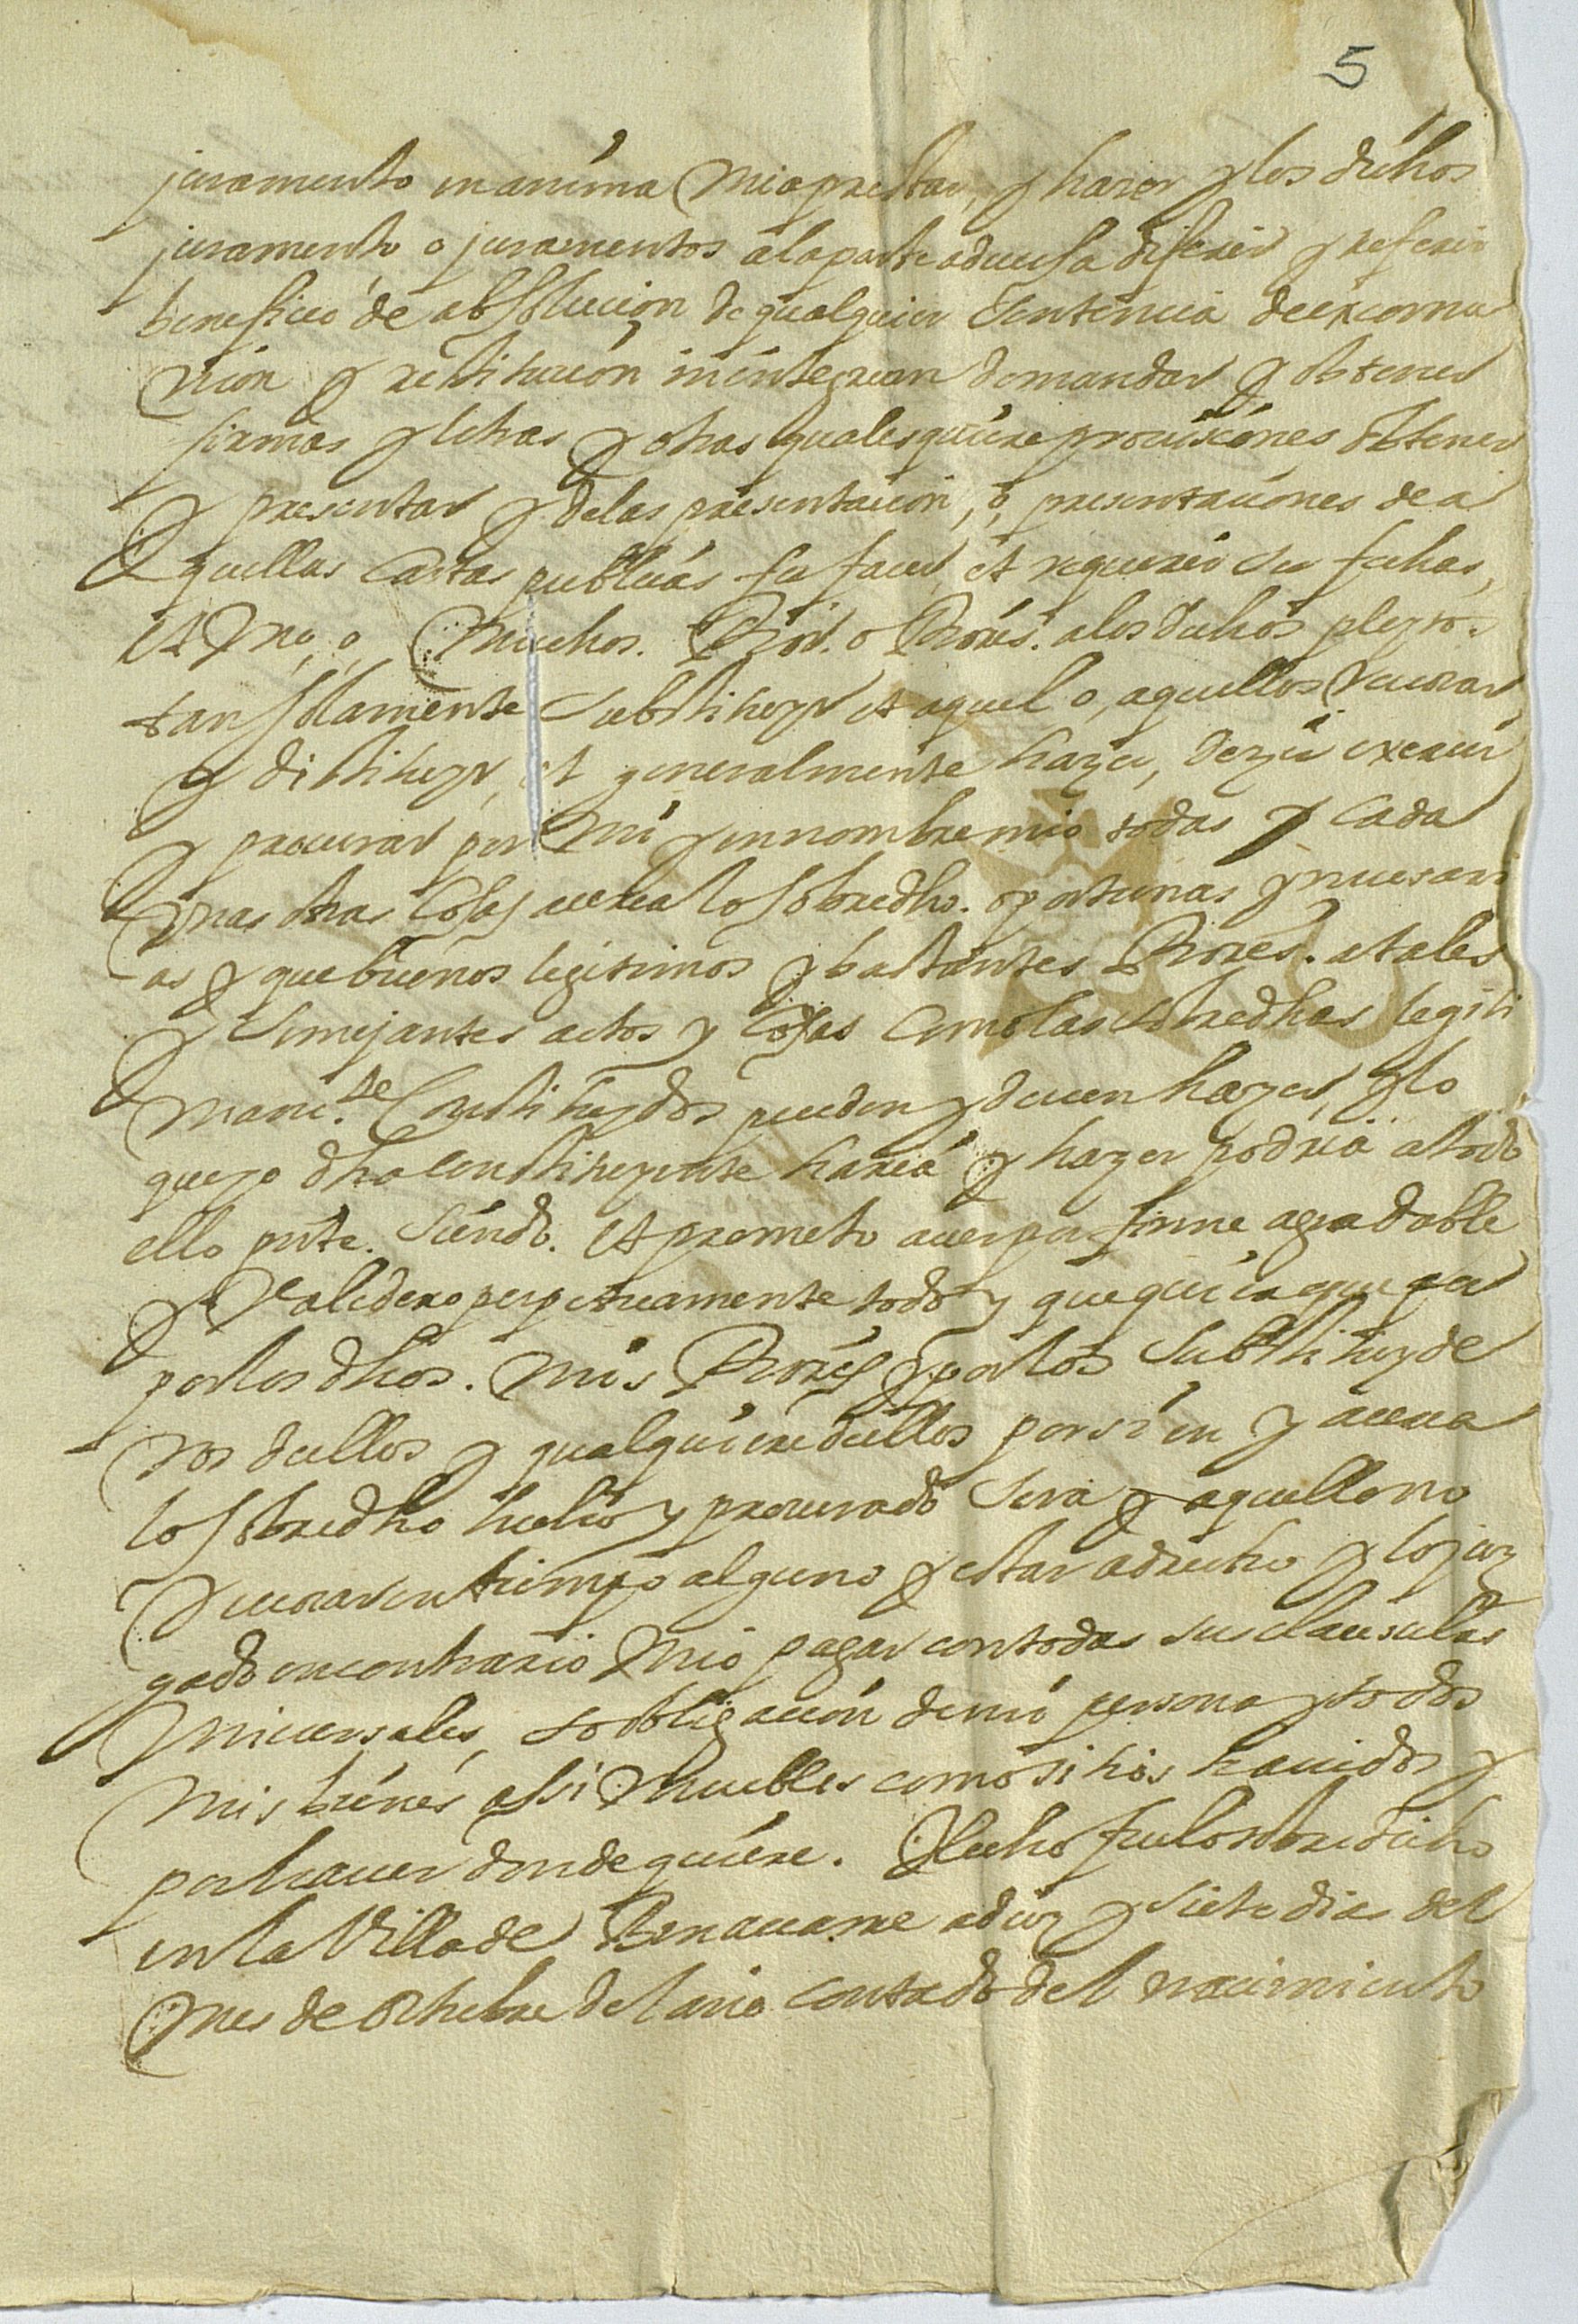 5
juramento en anima mia prestar, y hazer y los dichos
juramento o juramentos a la parte aduersa diferir y referir
beneficio de absolucion de qualquier sentencia de excomu
nion y restitucion in integrum demandar y obtener
firmas y letras y otras qualesquiere prouisiones obtener
y presentar y de las presentacion, o, presentaciones de a
quellas cartas publicas fer facer, et requerir ser fechas,
et vno, o, muchos. Pror. o Prores. a los dichos pleytos.
tan solamente substituyr et aquel o, aquellos reuocar
y distituyr, et generalmente hazer, dezir exercir
y procurar por mi y en nombre mio todas y cada
vnas otras cosas acerca lo sobredho. oportunas y necesari
as y que buenos legitimos y bastantes Prores. a tales
y semejantes actos y cosas como las sobredhas legiti
mamte. constituydos pueden y deuen hazer, y lo
que yo dho constituyente haria y hazer podria a todo
ello pnte. siendo. et prometo auer por firme agradable
y validero perpetuamente todo y que quiere que por
por los dhos. mis Prores y por los substituyde
ros dellos y qualquiere dellos por si en y acerca
lo sobredho hecho y procurado sera y aquello no
reuocar en tiempo alguno y estar a drecho y lo juz
gado en contrario mio pagar con todas sus clausulas
vniuersales, so obligacion de mi persona y todos
mis bienes assi muebles como sitios hauidos y
por hauer donde quiere. Hecho fue lo sobredicho
en la Villa de Benauarre a diez y siete dias del
mes de Octubre del año contado del nacimiento